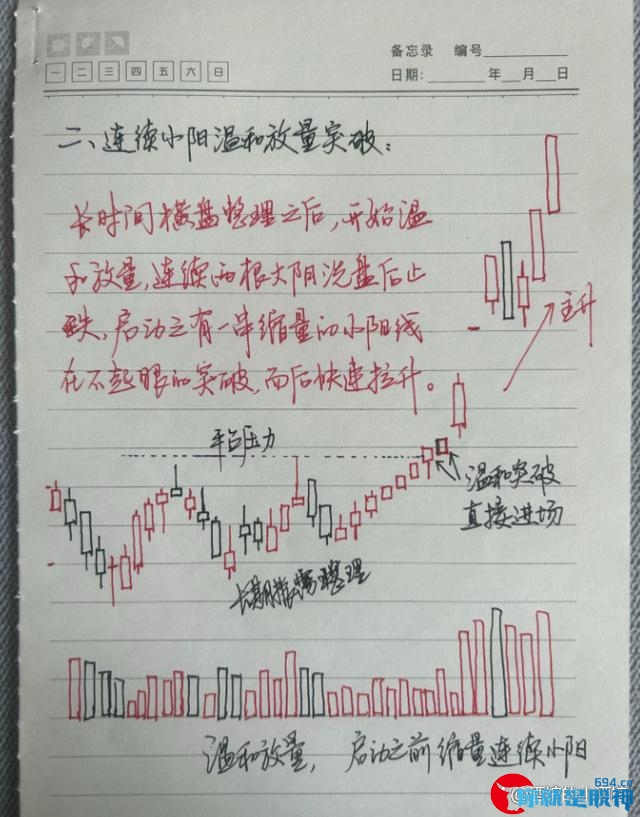 备忘录 编号
一 二 三 四 五 六 日
日期: 年 月 日
二、连续小阳温和放量突破：
长时间横盘整理之后，开始温
和放量，连续两根大阴洗盘后止
跌，启动之有一串缩量的小阳线
在不起眼的突破，而后快速拉升。
主升
平台压力
温和突破
直接进场
长期横盘整理
温和放量，启动之前缩量连续小阳
694.cn
你就是股神